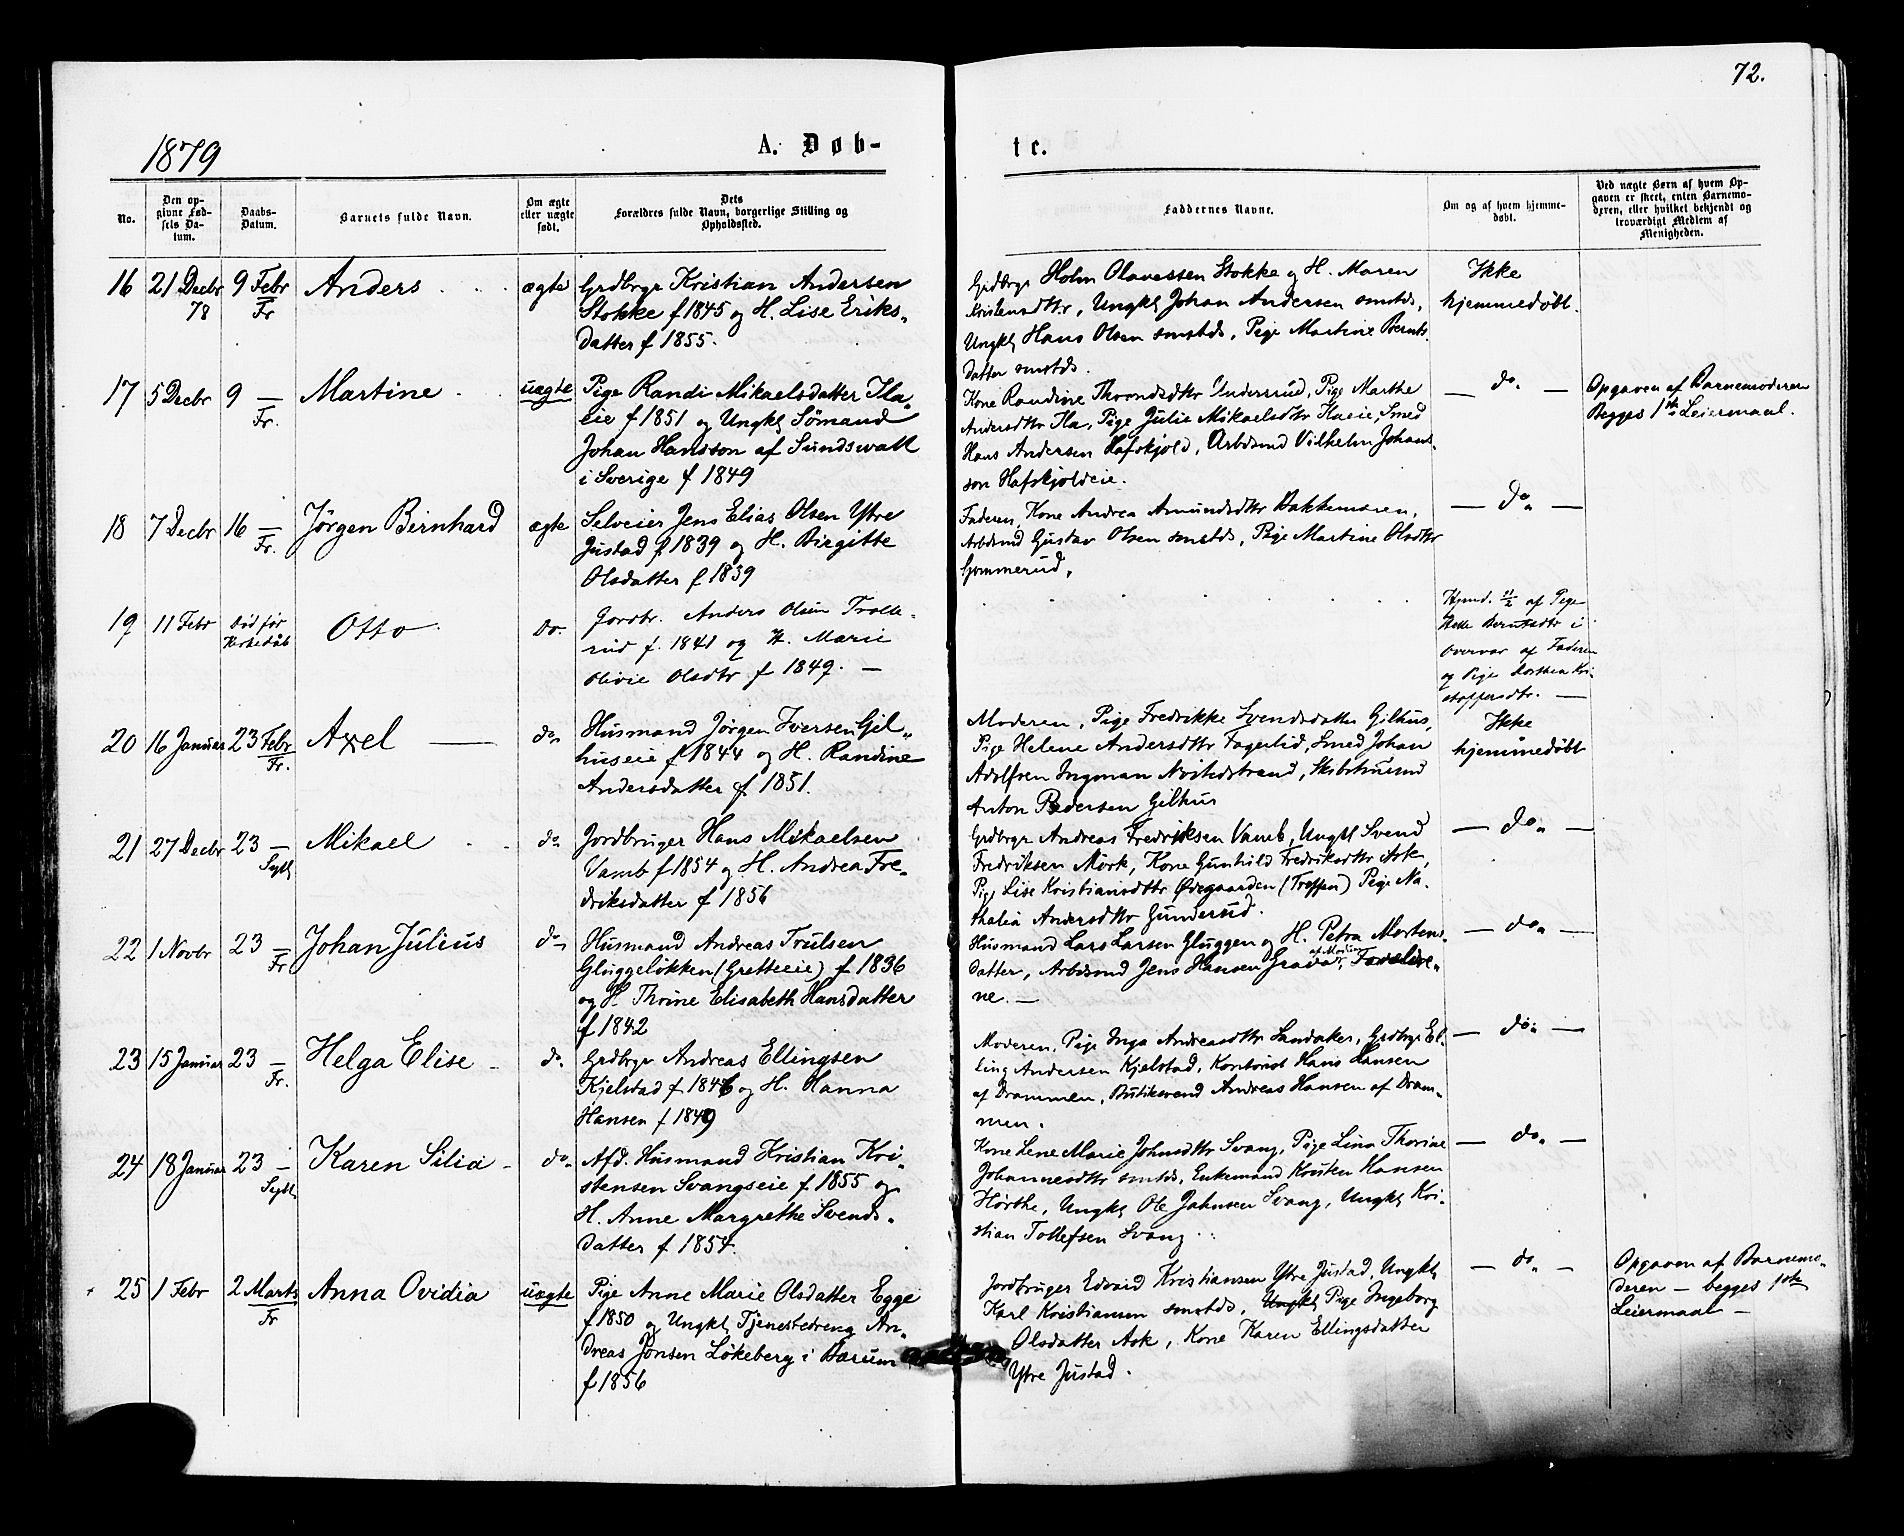 72.
1879
A. Døb-
te.
No.
Den op-
givne Fød-
sels Da-
tum.
Daabs-
Datum.
Barnets fulde Navn.
Om ægte
eller uægte
født.
Dets
Forældres fulde Navn, borgerlige Stilling og
Opholdssted.
Faddernes Navne.
Om og af hvem hjemme-
døbt.
Ved uægte Børn af hvem Op-
gaven er skeet, enten Barnemo-
deren, eller hvilket bekjendt og
troværdigt Medlem af
Menigheden.
16 21 Decbr 78 9 Febr Fr Anders ægte
Grdbrgr Kristian Andersen
Stokke f 1845 og H. Lise Eriks-
datter f 1855.
Grdbrgr Holm Olavessen Stokke og H. Maren
Kristensdttr, Ungkl Johan Andersen smstds,
Ungkl Hans Olsen smstds, Pige Martine Bernts
datter smstds.
Ikke
hjemmedøbt.
17 5 Decbr 9 — Fr. Martine uægte
Pige Randi Mikaelsdatter Ila-
eie f 1851 og Ungkl Sømand
Johan Hansson af Sundswall
i Sverige f 1849
Kone Randine Throndsdttr Undersrud, Pige Marthe
Andersdttr Ila, Pige Julie Mikaelsdttr Ilaeie, Smed
Hans Andersen Hafskjold, Arbdsmd Vilhelm Johans-
son Hafskjoldeie.
— do. —
Opgaven af Barnemoderen
Begges 1ste Leiermaal.
18 7 Decbr 16 — Fr. Jørgen Bernhard ægte
Selveier Jens Elias Olsen Ytre
Justad f 1839 og H. Birgitte
Olsdatter f 1839
Faderen, Kone Andrea Amundsdttr Bakkemoren,
Arbdsmd Gustav Olsen smstds, Pige Martine Olsdttr
Gommerud.
— do. —
19 11 Febr død før Kirkedåb Otto do.
Jordbr. Anders Olsen Trolle-
rud f. 1841 og H. Marie
Olivie Olsdtr f 1849. —
Hjmd. 11/2 af Pige
Helle Berntsdtr i
overvær af Faderen
og Pige Dorthea Kri-
stoffersdtr. —
20 16 Januar 23 Febr Fr. Axel — do.
Husmand Jørgen Iversen Gil-
huseie f 1844 og H. Randine
Andersdatter f 1851.
Moderen, Pige Fredrikke Svendsdatter Gilhus,
Pige Helene Andersdttr Fagerlid, Smed Johan
Adolfsen Ingman Nøstedstrand, Skibstmrmd
Anton Pedersen Gilhus
Ikke
hjemmedøbt
21 27 Decbr 23 — Syll Mikael do.
Jordbruger Hans Mikaelsen
Vamb f 1854 og H. Andrea Fre-
driksdatter f 1856
Grdbrgr Andreas Fredriksen Vamb, Ungkl Svend
Fredriksen Mörk, Kone Gunhild Fredriksdttr Ask,
Pige Lise Kristiansdttr Ødegaarden (Treffen) Pige Na-
thalia Andersdttr Gunderud.
— do. —
22 1 Novbr 23 — Fr Johan Julius do.
Husmand Andreas Trulsen
Gluggeløkken (Gretteeie) f 1836
og H. Thrine Elisabeth Hansdatter
f 1842
Husmand Lars Larsen Gluggen og H. Petra Mortens-
datter, Arbdsmd Jens Hansen Grava, Foreldre-
ne. —
— do. —
23 15 Januar 23 — Fr. Helga Elise do.
Grdbrgr Andreas Ellingsen
Kjelstad f 1846 og H. Hanna
Hansen f 1849
Moderen, Pige Inga Andreasdttr Landaker, Grdbrgr El-
ling Andersen Kjelstad, Kontorist Hans Hansen
af Drammen, Butiksvend Andreas Hansen af Dram-
men.
— do. —
24 18 Januar 23 — Syll Karen Silia do.
Afd. Husmand Kristian Kri-
stensen Svangseie f 1855 og
H. Anne Margrethe Svends-
datter f 1854.
Kone Lene Marie Johnsdttr Svang, Pige Lina Thorine
Johannesdttr smstds, Enkemand Kristen Hansen
Hørthe, Ungkl Ole Johnsen Svang, Ungkl Kri-
stian Tollefsen Svang
— do. —
25 1 Febr 2 Marts Fr Anna Ovidia uægte
Pige Anne Marie Olsdatter Egge
f 1850 og Ungkl Tjenestedreng An-
dreas Jonsen Løkeberg i Bærum
f 1856
Jordbruger Edvard Kristiansen Ytre Justad, Ungkl
Karl Kristiansen smstds, Ungkl Pige Ingeborg
Olsdatter Ask, Kone Karen Ellingsdatter
Ytre Justad.
— do. —
Opgaven af Barnemo-
deren — begges 1ste
Leiermaal —